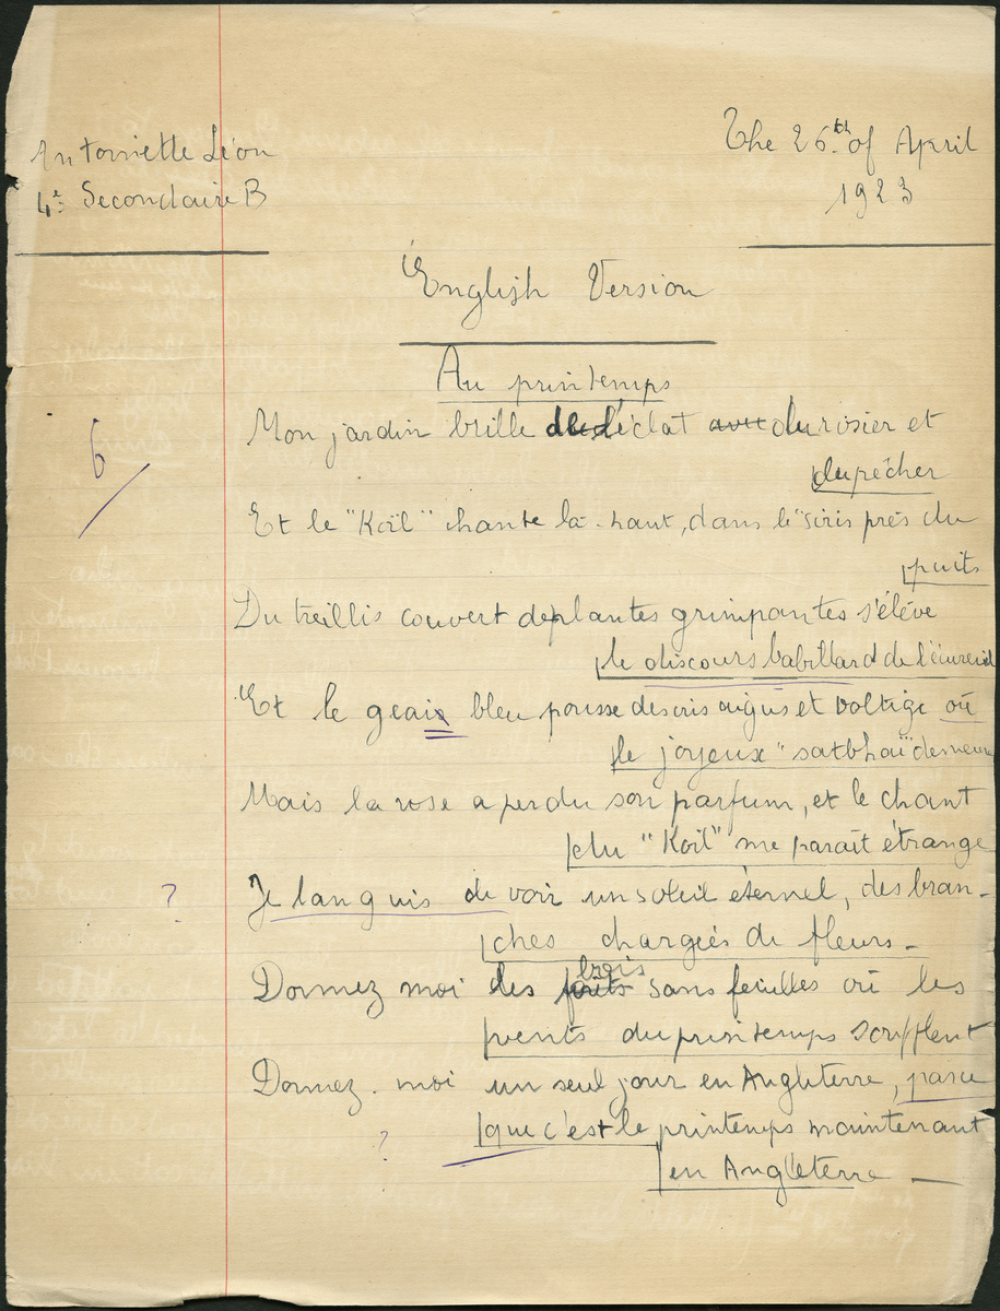 Antoinette Léon
The 26th of April
4e Secondaire B
1923
English Version
Au printemps
Mon jardin brille de l'éclat avec du rosier et
du pêcher
6
Et le "Koïl" chante là-haut, dans le "siris près du
puits
Du treillis couvert de plantes grimpantes s'élève
le discours babillard de l'écureuil
Et le geaix bleu pousse des cris aigus et voltige où
le joyeux "satbhaï demeure
Mais la rose a perdu son parfum, et le chant
du "Koïl" me paraît étrange
? Je languis de voir un soleil éternel, des bran-
ches chargées de fleurs -
bois
Donnez moi des forêts sans feuilles où les
vents du printemps soufflent
Donnez-moi un seul jour en Angleterre, parce
? que c'est le printemps maintenant
en Angleterre —